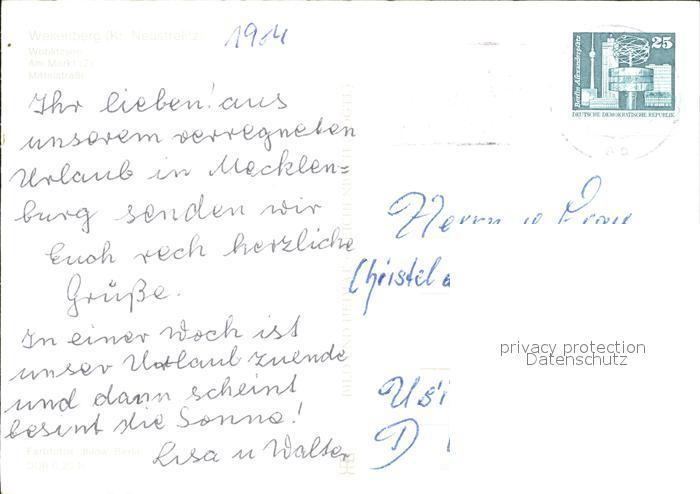 Wesenberg (Kr. Neustrelitz)
Am Markt (2)
Mittelstraße
1914
Ihr lieben! aus
unserem verregneten
Urlaub in Mecklen=
burg senden wir
Euch rech herzliche
Grüße.
In einer Woch ist
unser Urlaub zuende
und dann scheint
besint die Sonne!
Lisa u Walter
Berlin Alexanderplatz
25
DEUTSCHE DEMOKRATISCHE REPUBLIK
Herrn u Frau
Christel
privacy protection
Datenschutz
D